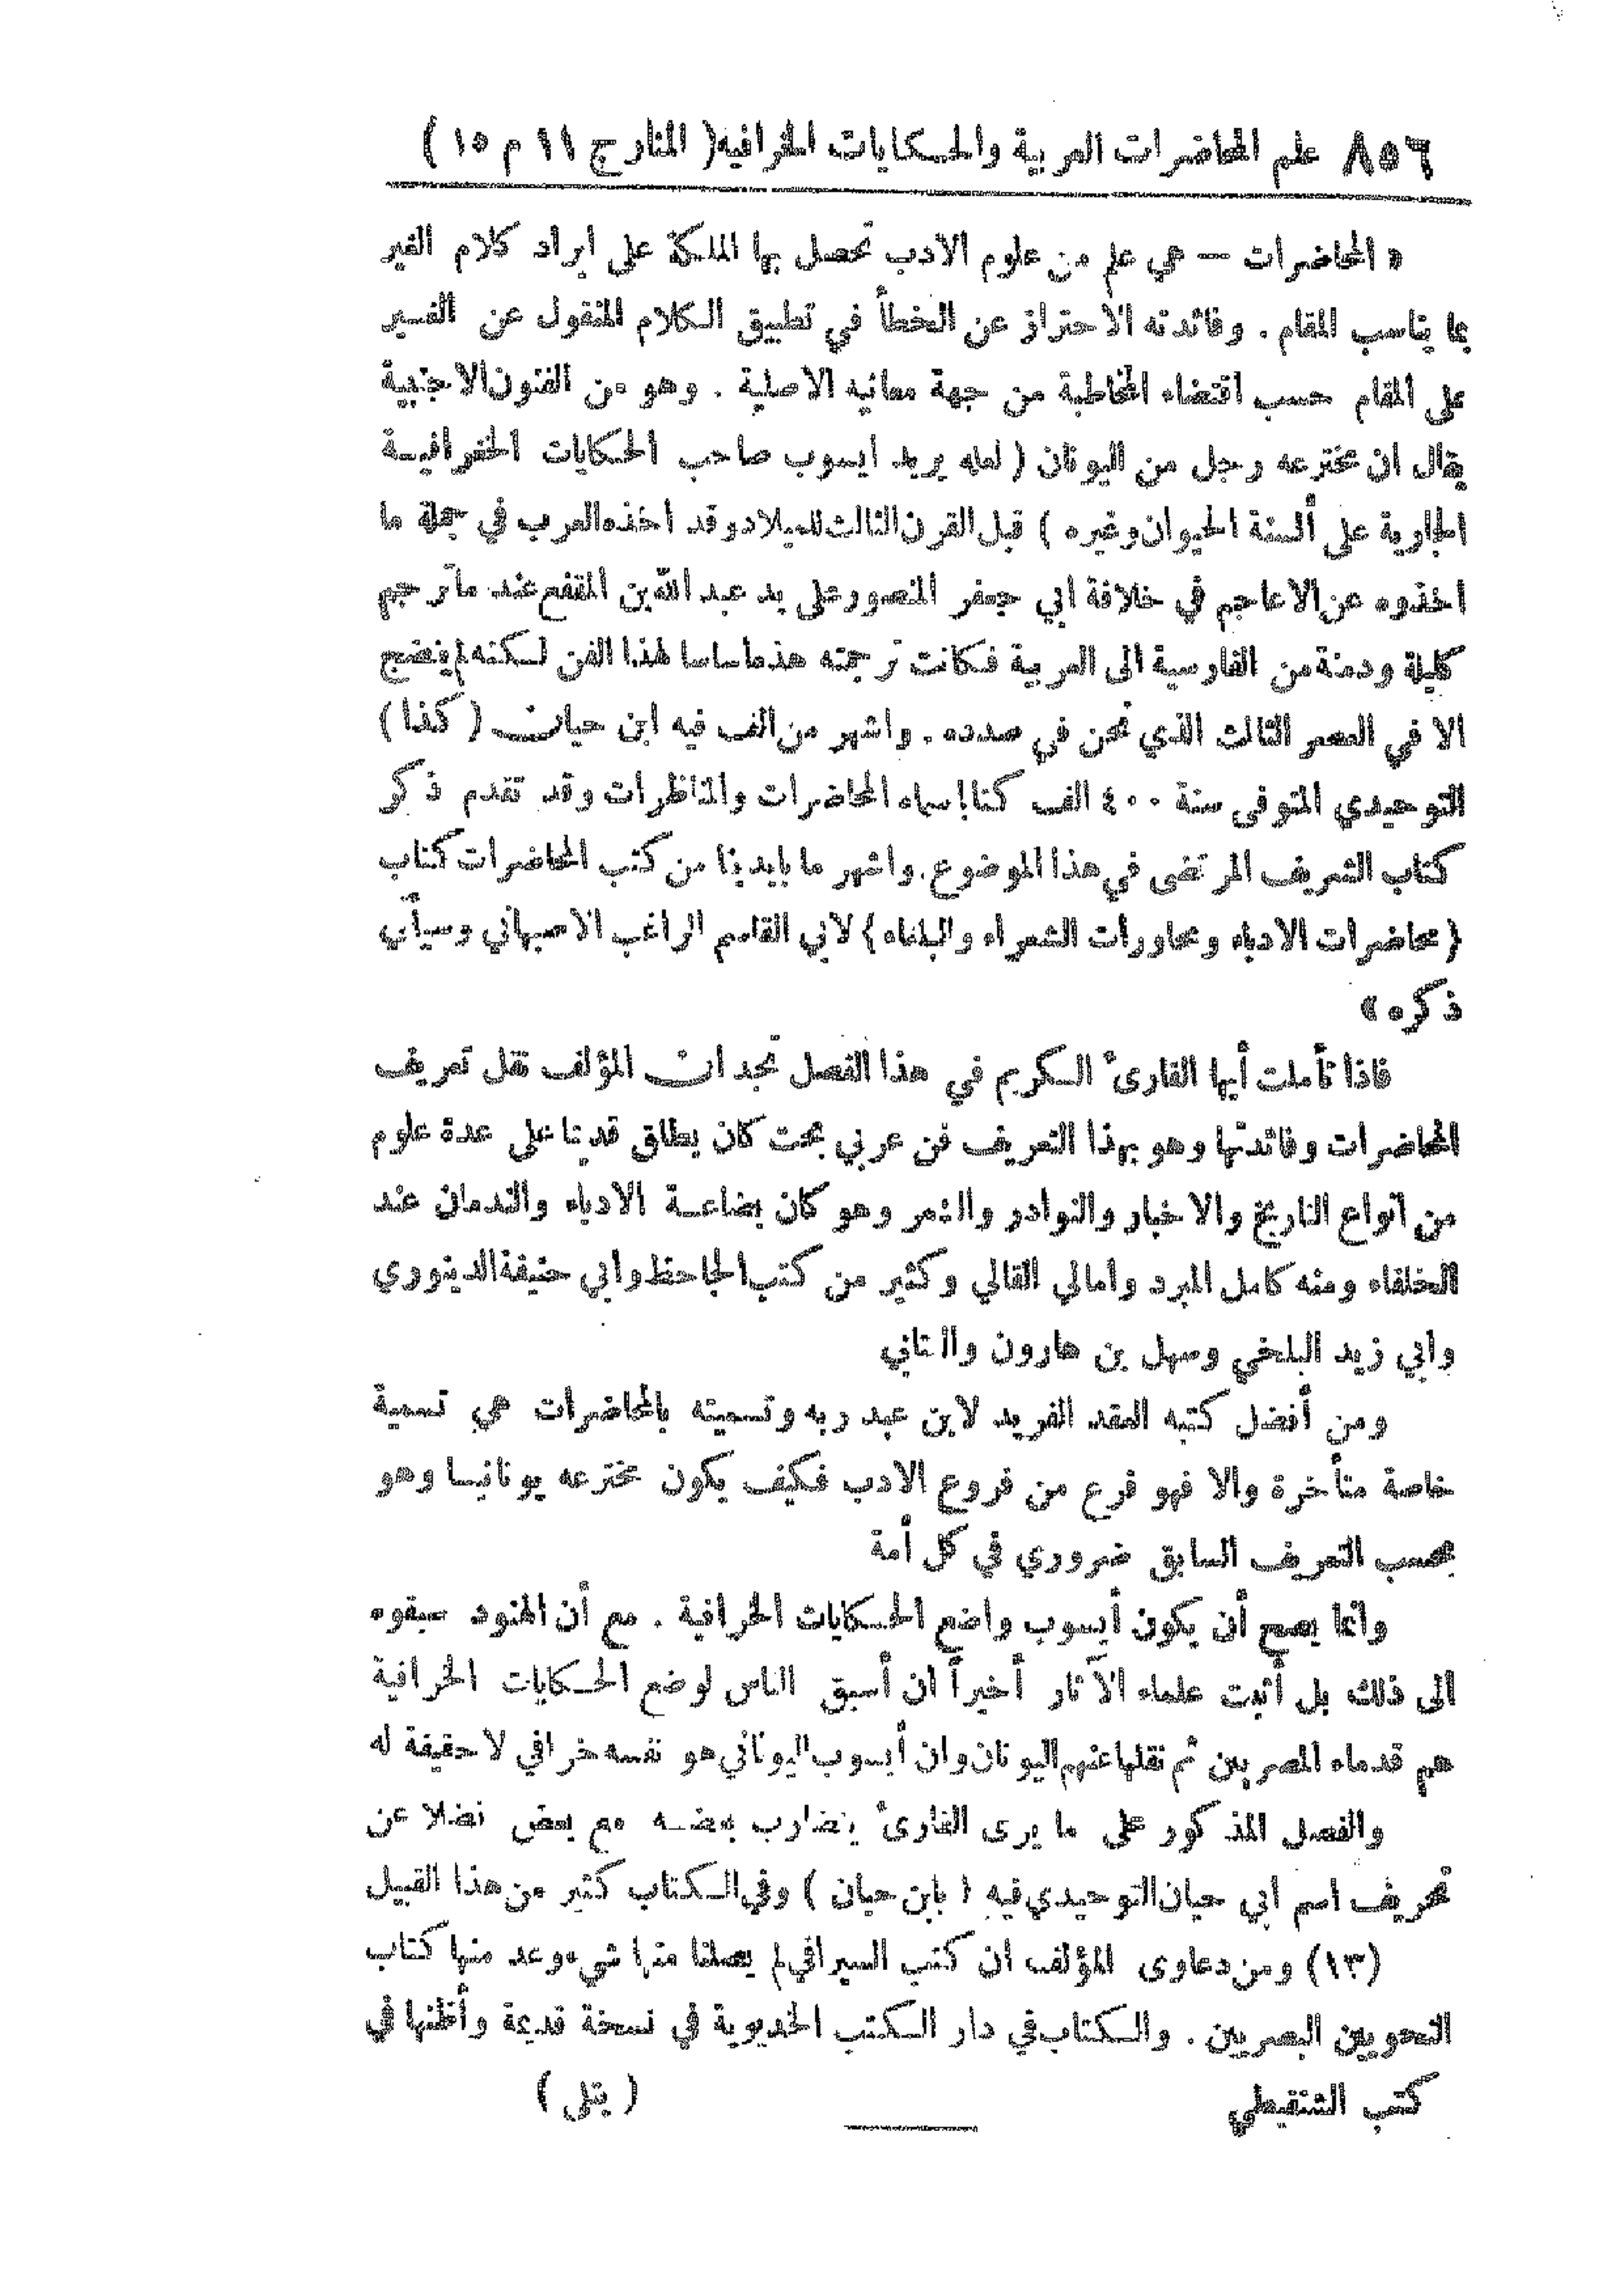 ٨٥٦ علم المحاضرات العربية والحكايات الخرافيه ( المنار ج ١١ م ١٥ )
« المحاضرات — هي علم من علوم الادب تحصل بها الملكة على ايراد كلام الغير
بما يناسب المقام . وفائدته الاحتراز عن الخطأ في تطبيق الكلام المنقول عن الغير
على المقام حسب اقتضاء المخاطبة من جهة معانيه الاصلية . وهو من الفنون الاجنبية
يقال ان مخترعه رجل من اليونان ( لعله يريد ايسوب صاحب الحكايات الخرافية
الجارية على ألسنة الحيوان وغيره ) قبل القرن الثالث للميلاد وقد اخذه العرب في جملة ما
اخذوه عن الاعاجم في خلافة ابي جعفر المنصور على يد عبد الله بن المقفع عند ما ترجم
كليلة ودمنة من الفارسية الى العربية فكانت ترجمته هذه اساسا لهذا الفن لكنه لم ينضج
الا في العصر الثالث الذي نحن في صدده . واشهر من الف فيه ابن حيان ( كذا )
التوحيدي المتوفى سنة ٤٠٠ الف كتابا سماه المحاضرات والمناظرات وقد تقدم ذكر
كتاب الشريف المرتضى في هذا الموضوع . واشهر ما بايدينا من كتب المحاضرات كتاب
( محاضرات الادباء ومحاورات الشعراء والبلغاء ) لابي القاسم الراغب الاصبهاني وسيأتي
ذكره »
فاذا تأملت أيها القارئ الكريم في هذا الفصل تجد ان المؤلف نقل تعريف
المحاضرات وفائدتها وهو بهذا التعريف فن عربي بحت كان يطلق قديما على عدة علوم
من انواع التاريخ والاخبار والنوادر والشعر وهو كان بضاعة الادباء والندمان عند
الخلفاء ومنه كامل المبرد وامالي القالي وكثير من كتب الجاحظ وابي حنيفة الدينوري
وابي زيد البلخي وسهل بن هارون والعتابي
ومن أفضل كتبه العقد الفريد لابن عبد ربه وتسميته بالمحاضرات هي تسمية
خاصة متأخرة والا فهو فرع من فروع الادب فكيف يكون مخترعه يونانيا وهو
بحسب التعريف السابق ضروري في كل أمة
وانما يصح أن يكون أيسوب واضع الحكايات الخرافية . مع أن الهنود سبقوه
الى ذلك بل أثبت علماء الآثار أخيراً ان أسبق الناس لوضع الحكايات الخرافية
هم قدماء المصريين ثم نقلها عنهم اليونان وان أيسوب اليوناني هو نفسه خرافي لا حقيقة له
والفصل المذكور على ما يرى القارئ يتضارب بعضه مع بعض فضلا عن
تحريف اسم ابي حيان التوحيدي فيه ( بابن حيان ) وفي الكتاب كثير من هذا القبيل
(١٣) ومن دعاوى المؤلف ان كتب السيرافي لم يصلنا منها شيء وعد منها كتاب
النحويين البصريين . والكتاب في دار الكتب الخديوية في نسخة قديمة وأظنها في
كتب الشنقيطي ( يتلى )